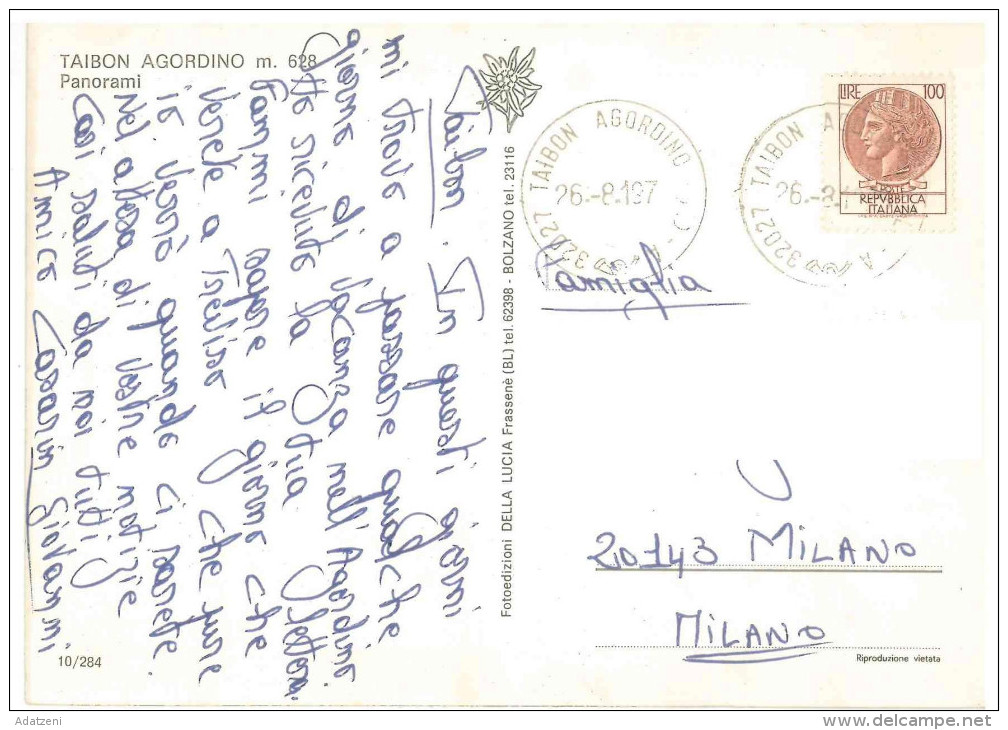 TAIBON AGORDINO m. 628
Panorami
Taibon. In questi giorni
mi trovo a passare qualche
giorno di vacanza nell'Agordino
Ho ricevuto la tua lettera.
Fammi sapere il giorno che
verete a Treviso che pure
io verrò quando ci sarete.
Nel attesa di vostre notizie
Cari saluti da noi tutti
Amico Cassarin Giovanni
10/284
Fotoedizioni DELLA LUCIA Frassenè (BL) tel. 62398 - BOLZANO tel. 23116
32027 TAIBON AGORDINO
26.-8.197
32027 TAIBON A
26.-8.1
LIRE 100
POSTE
REPVBBLICA
ITALIANA
Famiglia
20143 MILANO
MILANO
Riproduzione vietata
Adatzeni
www.delcampe.net